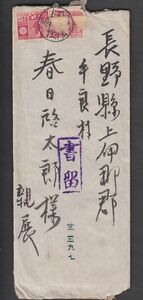 長野縣上伊那郡
手良村
春日啓太郎様
親展
書留
三九七